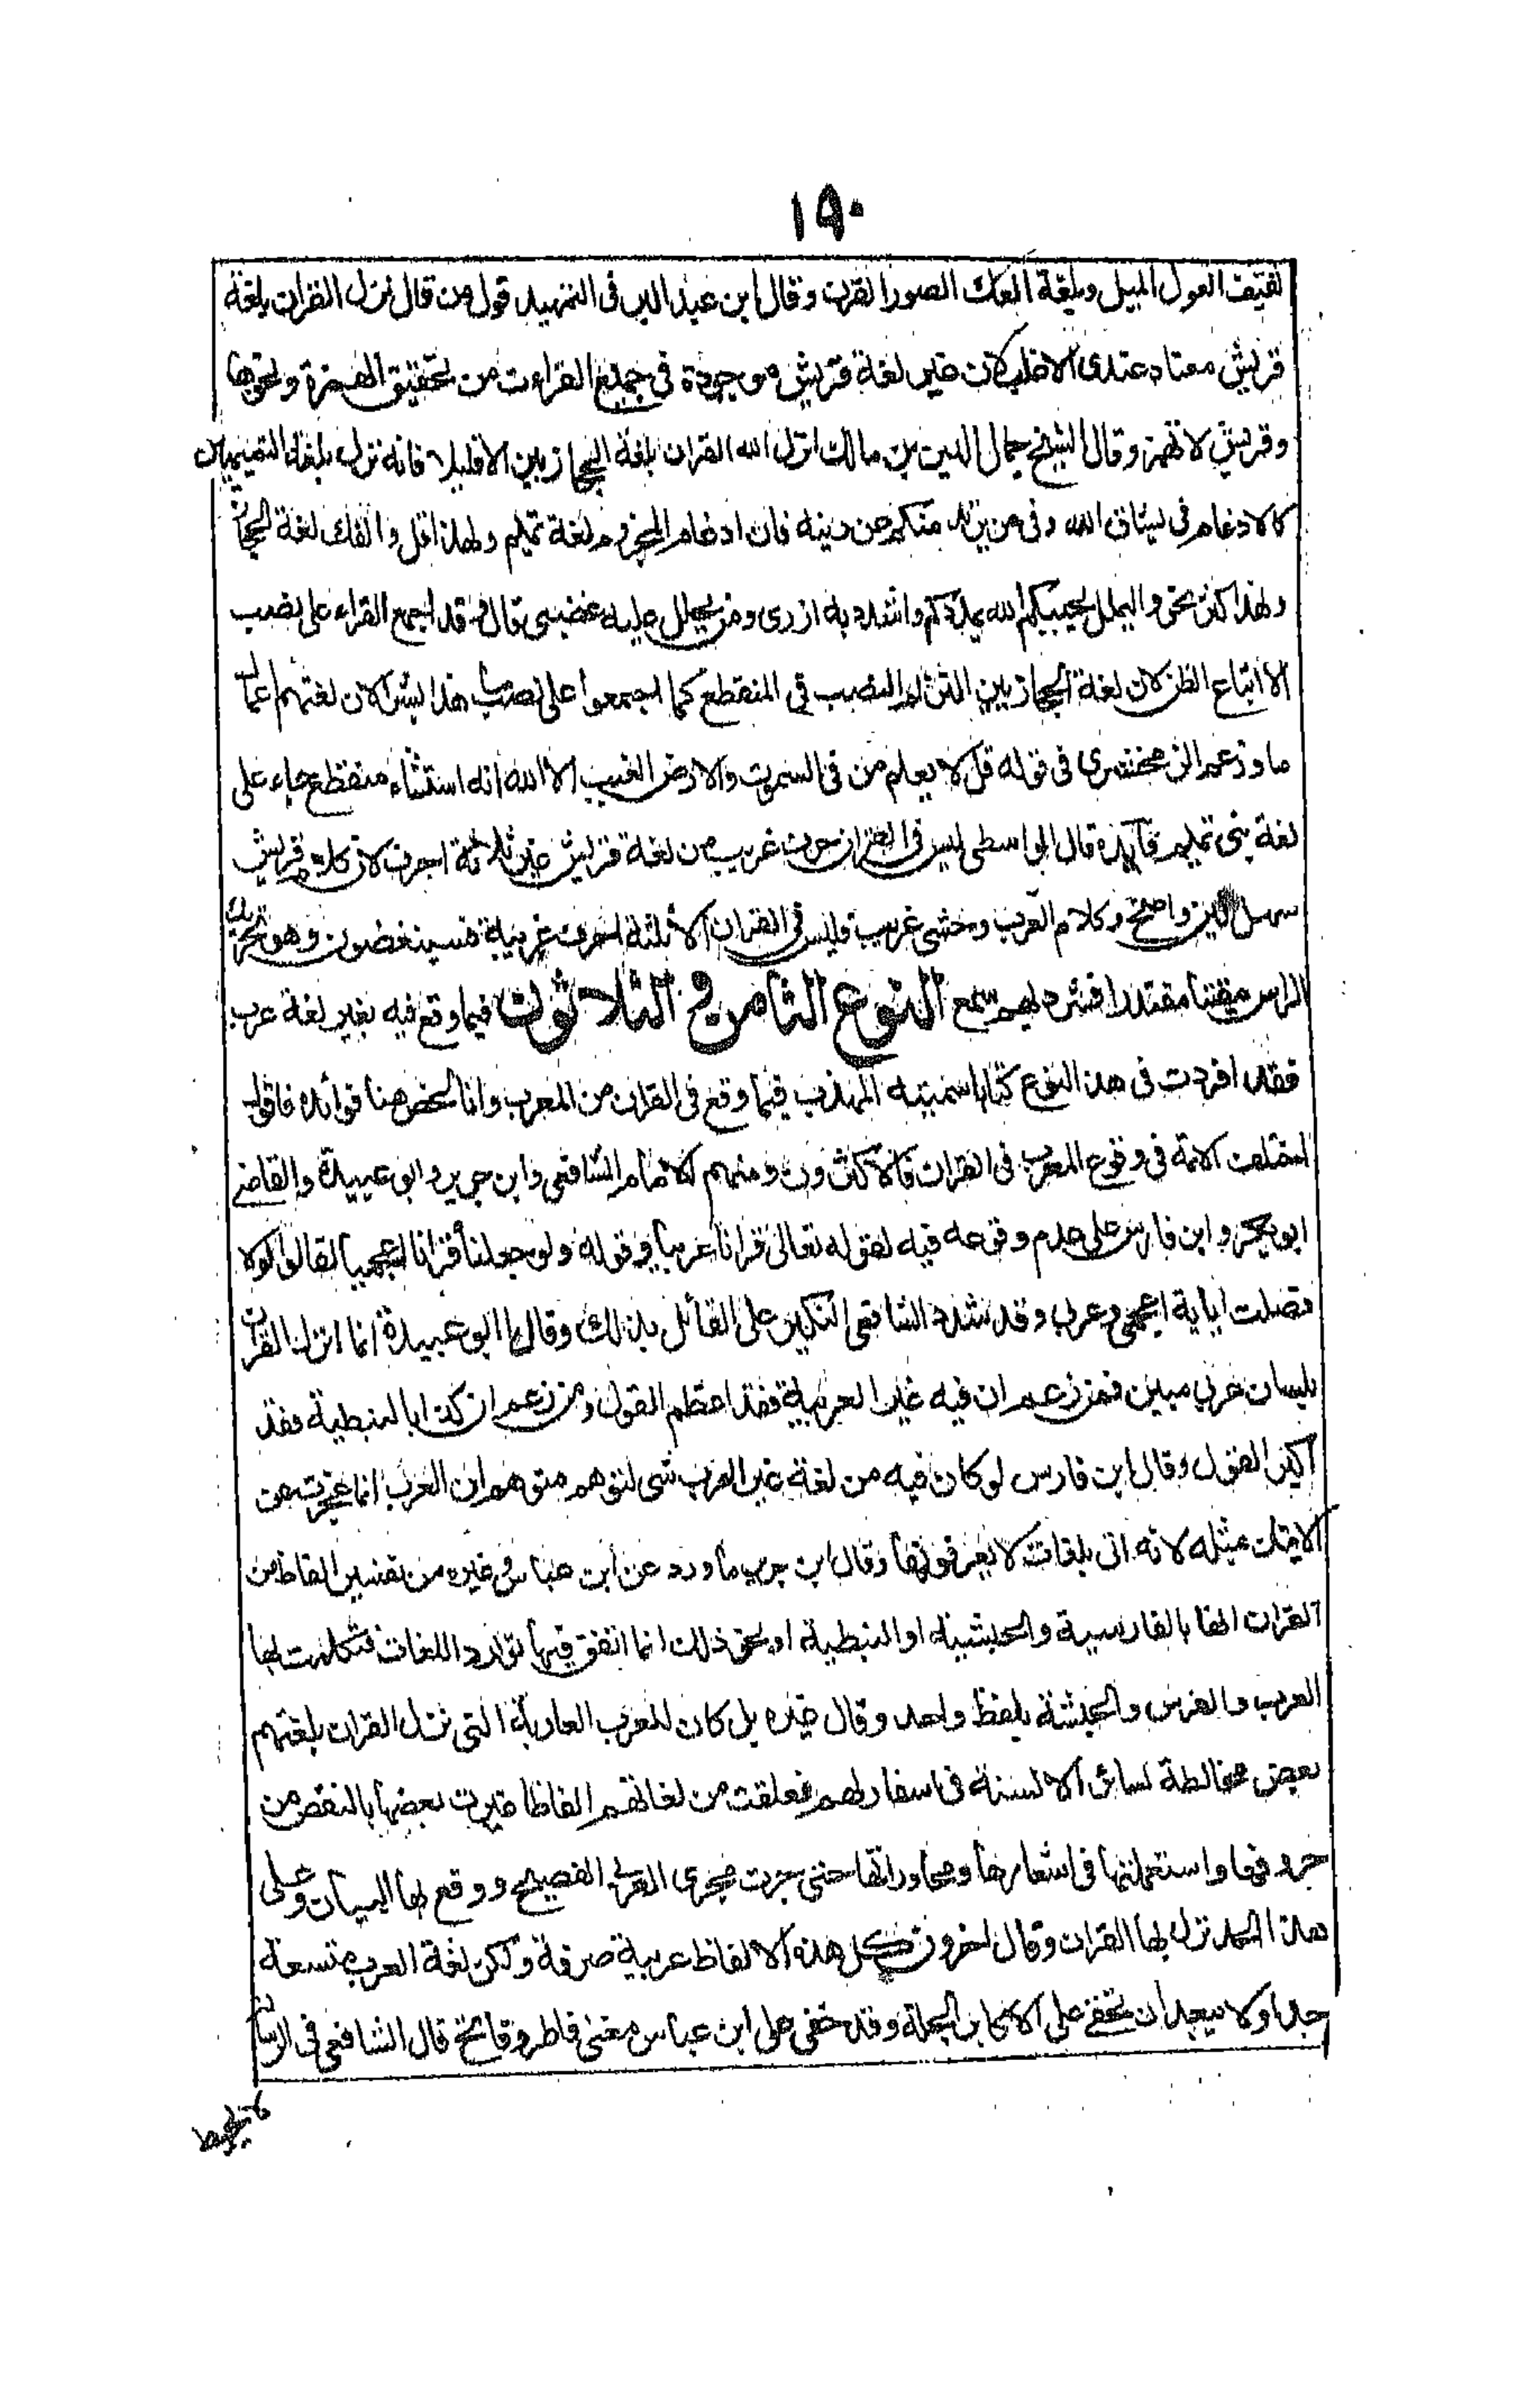 ١٩٠
ثقيف العول الميل وبلغة العك الصور القرن وقال ابن عبد البر فى التمهيد قول من قال نزل القران بلغة
قريش معناه عندى الاغلب لان غير لغة قريش موجودة فى جميع القراءت من تحقيق الهمزة ونحوها
وقريش لا تهمز وقال الشيخ جمال الدين بن مالك انزل الله القران بلغة الحجازيين الا قليلا فانه نزل بلغة التميميين
كالادغام فى يشاق الله وفى من يرتد منكم عن دينه فان ادغام المجزوم لغة تميم ولهذا قل والفك لغة الحجاز
ولهذا كثر نحو وليملل يحببكم الله يمددكم واشدد به ازرى ومن يحلل عليه غضبى قال وقد اجمع القراء على نصب
الا اتباع الظن لان لغة الحجازيين التزام النصب فى المنقطع كما اجمعوا على نصب ما هذا بشرا لان لغتهم اعمال
ما وزعم الزمخشرى فى قوله قل لا يعلم من فى السموت والارض الغيب الا الله انه استثناء منقطع جاء على
لغة بنى تميم فآيدة قال الواسطى ليس فى القران حرف غريب من لغة قريش غير ثلاثة احرف لان كلام قريش
سهل لين واضح وكلام العرب وحشى غريب فليس فى القران الا ثلثة احرف غريبة فسينغضون وهو تحريك
الراس مقيتا مقتدرا فشرد بهم سمع النوع الثامن و الثلاثون فيما وقع فيه بغير لغة عرب
فقد افردت فى هذا النوع كتابا سميته المهذب فيما وقع فى القران من المعرب وانا الخص هنا فوائده فاقول
اختلفت الائمة فى وقوع المعرب فى القران فالاكثرون ومنهم الامام الشافعى وابن جرير وابو عبيدة والقاضى
ابو بكر وابن فارس على عدم وقوعه فيه لقوله تعالى قرانا عربيا وقوله ولو جعلناه قرانا اعجميا لقالوا لولا
فصلت اياته اعجمى وعربى وقد شدد الشافعى النكير على القائل بذلك وقال ابو عبيدة انما انزل القران
بلسان عربي مبين فمن زعم ان فيه غير العربية فقد اعظم القول ومن زعم ان كذابا بالنبطية فقد
اكبر القول وقال ابن فارس لو كان فيه من لغة غير العرب شى لتوهم متوهم ان العرب انما عجزت عن
الاتيان بمثله لانه اتى بلغات لا يعرفونها وقال ابن جرير ما ورد عن ابن عباس وغيره من تفسير الفاظ من
القران انها بالفارسية والحبشية او النبطية او نحو ذلك انما اتفق فيها توارد اللغات فتكلمت بها
العرب والفرس والحبشة بلفظ واحد وقال غيره بل كان للعرب العاربة التى نزل القران بلغتهم
بعض مخالطة لسائر الالسنة فى اسفارهم فعلقت من لغاتهم الفاظا غيرت بعضها بالنقص من
حروفها واستعملتها فى اشعارها ومحاوراتها حتى جرت مجرى العربى الفصيح ووقع بها البيان وعلى
هذا الحد نزل بها القران وقال اخرون كل هذه الالفاظ عربية صرفة ولكن لغة العرب متسعة
جدا ولا يبعد ان تخفى على الاكابر الجلة وقد خفى على ابن عباس معنى فاطر وفاتح قال الشافعى فى الرسالة
لا يحيط